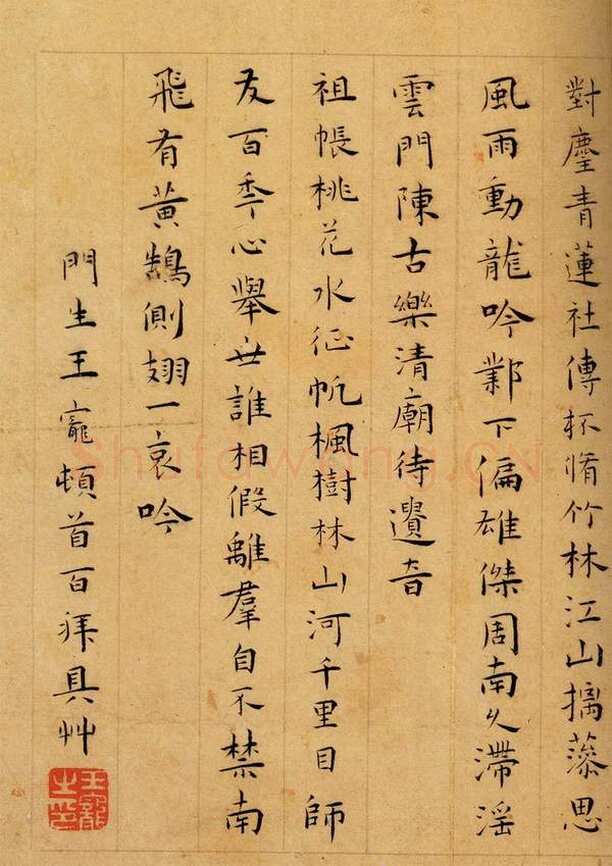 對麈青蓮社傳杯脩竹林江山摛藻思
風雨動龍吟鄴下偏雄傑周南久滯淫
雲門陳古樂清廟待遺音
祖帳桃花水征帆楓樹林山河千里目師
友百年心舉世誰相假離羣自不禁南
飛有黃鵠側翅一哀吟
門生王寵頓首百拜具艸
王寵之印